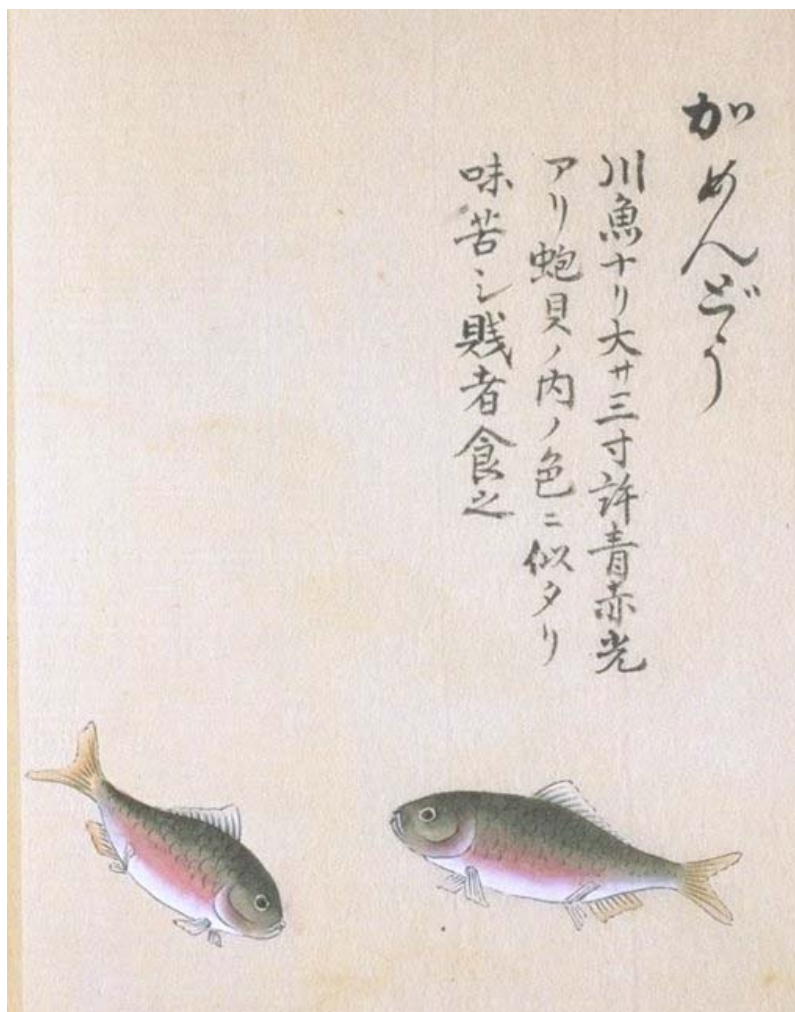 がめんどう
川魚ナリ大サ三寸許青赤光
アリ鮑貝ノ内ノ色ニ似タリ
味苦シ賤者食之